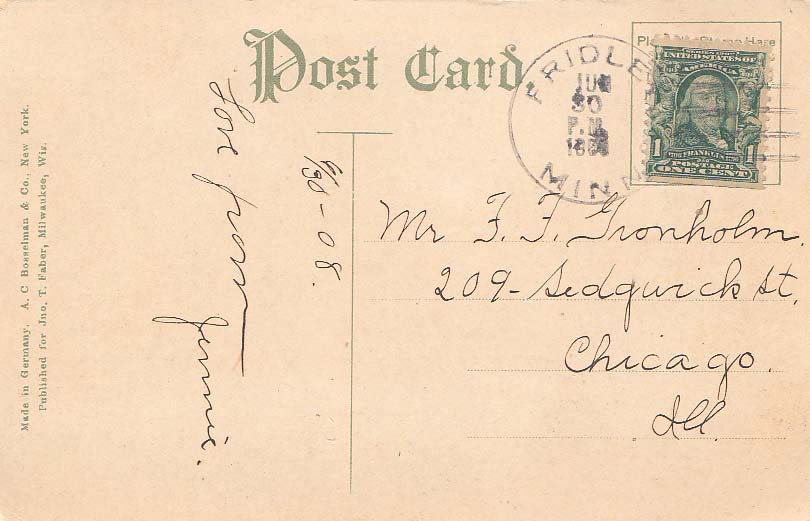 Post Card.
Made in Germany. A. C Bosselman & Co., New York.
Published for Jno. T. Faber, Milwaukee, Wis.
Love from
Jennie.
6/30-08.
FRIDLE
JUN
30
P.M.
MINN
Stamp Here
UNITED STATES OF
AMERICA
1 FRANKLIN 1
POSTAGE
ONE CENT
Mr F. F. Gronholm.
209- Sedgwick St.
Chicago.
Ill.